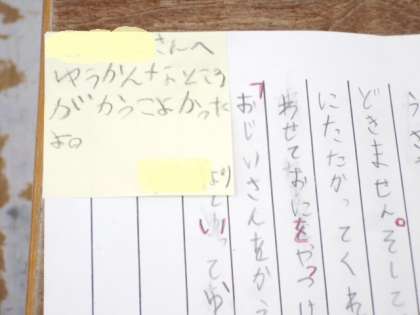 さんへ
ゆうかんなところ
がかっこよかった
よ。
より
うさ
どきません。そして
にたたかってくれ
あわせておにをやっつけ
「おじいさんをか
といって